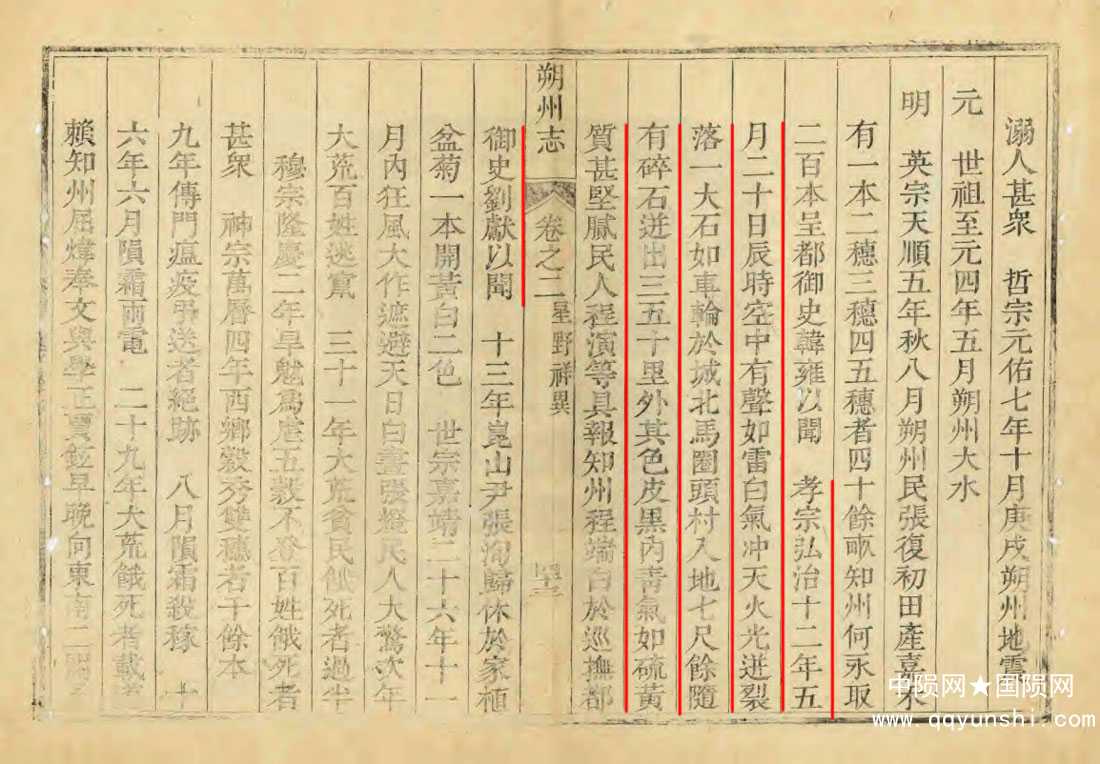 溺人甚衆　哲宗元佑七年十月庚戌朔州地震
元　世祖至元四年五月朔州大水
明　英宗天順五年秋八月朔州民張復初田產嘉禾
有一本二穗三穗四五穗者四十餘畝知州何永取
二百本呈都御史韓雍以聞　孝宗弘治十二年五
月二十日辰時空中有聲如雷白氣冲天火光迸裂
落一大石如車輪於城北馬圈頭村入地七尺餘隨
有碎石迸出三五十里外其色皮黑內青氣如硫黃
質甚堅膩民人程演等具報知州程端白於巡撫都
朔州志　卷之二　星野祥異　四三
御史劉獻以聞　十三年崑山尹張洵歸休於家植
盆菊一本開黃白二色　世宗嘉靖二十六年十一
月內狂風大作遮避天日白晝張燈民人大驚次年
大荒百姓逃竄　三十一年大荒貧民餓死者過半
穆宗隆慶二年旱魃爲虐五穀不登百姓餓死者
甚衆　神宗萬曆四年西鄉穀秀雙穗者千餘本
九年傳門瘟疫弔送者絕跡　八月隕霜殺稼　十
六年六月隕霜雨雹　二十九年大荒餓死者載
賴知州屈煒奉文與學正　鉉早晚向東南二
中陨网★国陨网
www.qqyunshi.com